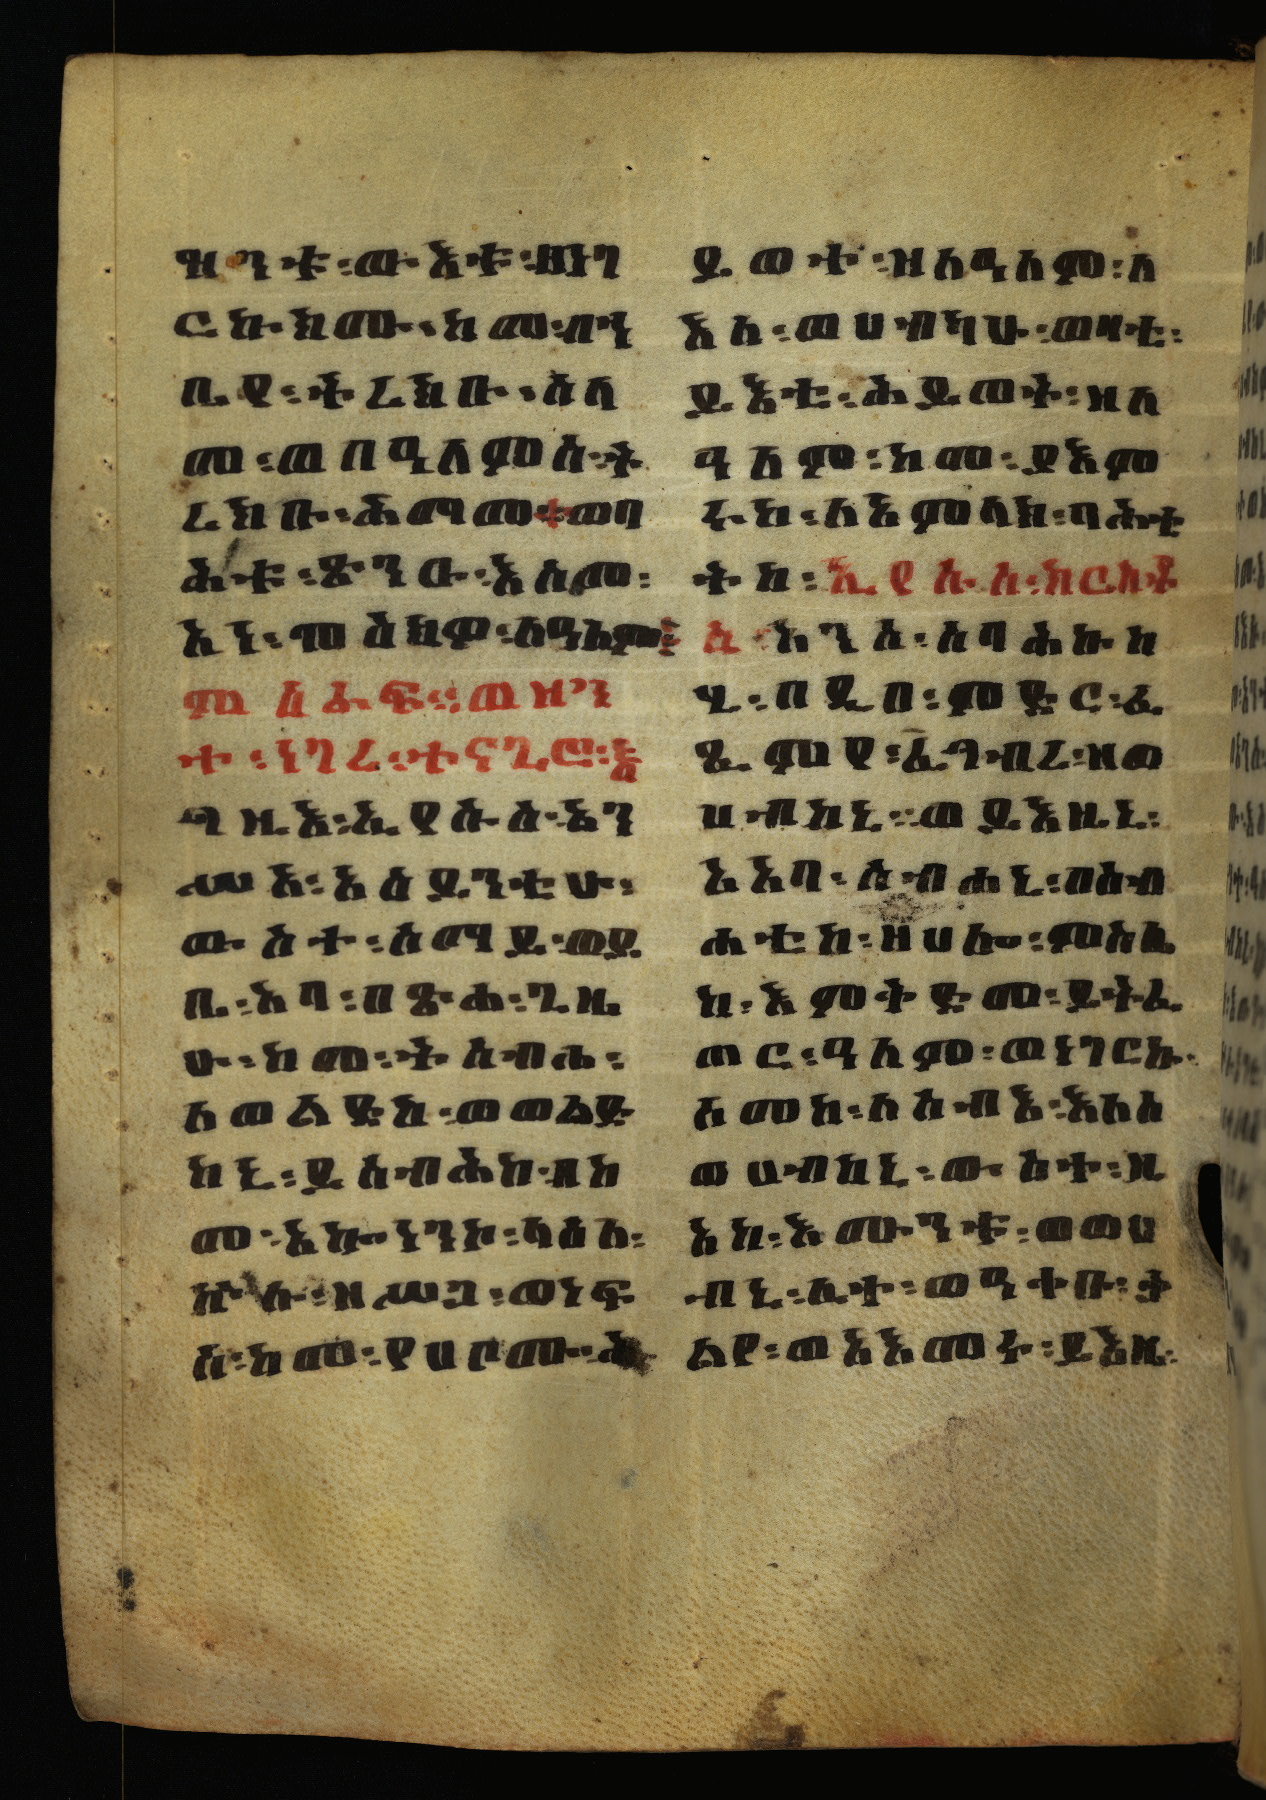 ዝንቱ፡ውእቱ፡ዘነገ
ርኩክሙ፡ከመ፡ብን
ቢየ፡ትረክቡ፡ሰላ
መ፡ወበዓለምሰ፡ት
ረክቡ፡ሕማመ፡ወባ
ሕቱ፡ጽንዑ፡እስመ፡
አነ፡ሞዕክዎ፡ለዓለም፡
ምዕራፍ፡፡ወዘን
ተ፡ነገረ፡ተናጊሮ፡እ
ግዚእ፡ኢየሱስ፡አን
ሥአ፡አዕይንቲሁ፡
ውስተ፡ሰማይ፡ወይ
ቤ፡አባ፡በጽሐ፡ጊዜ
ሁ፡ከመ፡ትሰብሖ፡
ለወልድከ፡ወወልድ
ከኒ፡ይሰብሕከ፡በከ
መ፡አኰነንኮ፡ላዕለ፡
ኵሉ፡ዘሥጋ፡ወነፍ
ስ፡ከመ፡የሀቦሙ፡ሕ
ይወተ፡ዘለዓለም፡ለ
እለ፡ወሀብካሁ፡ወዛቲ፡
ይእቲ፡ሕይወት፡ዘለ
ዓለም፡ከመ፡ያእም
ሩከ፡ለአምላክ፡ባሕቲ
ትከ፡ኢየሱስ፡ክርስቶ
ስ፡አንሰ፡ሰባሕኩከ
በዲበ፡ምድር፡ፈ
ጼምየ፡ግብረ፡ዘወ
ሀብከኒ፡፡ወይእዜኒ፡
አአባ፡ሰብሐኒ፡በስብ
ሐቲከ፡ዘሀሎ፡ምስሌ
ከ፡እምቅድመ፡ይትፈ
ጠር፡ዓለም፡ወነገርኩ፡
ስመከ፡ለሰብእ፡እለ
ወሀብከኒ፡ውስተ፡ዚ
አከ፡እሙንቱ፡ወወሀ
ብኒ፡ሊተ፡ወዓቀቡ፡ቃ
ልየ፡ወአእመሩ፡ይእዜ፡